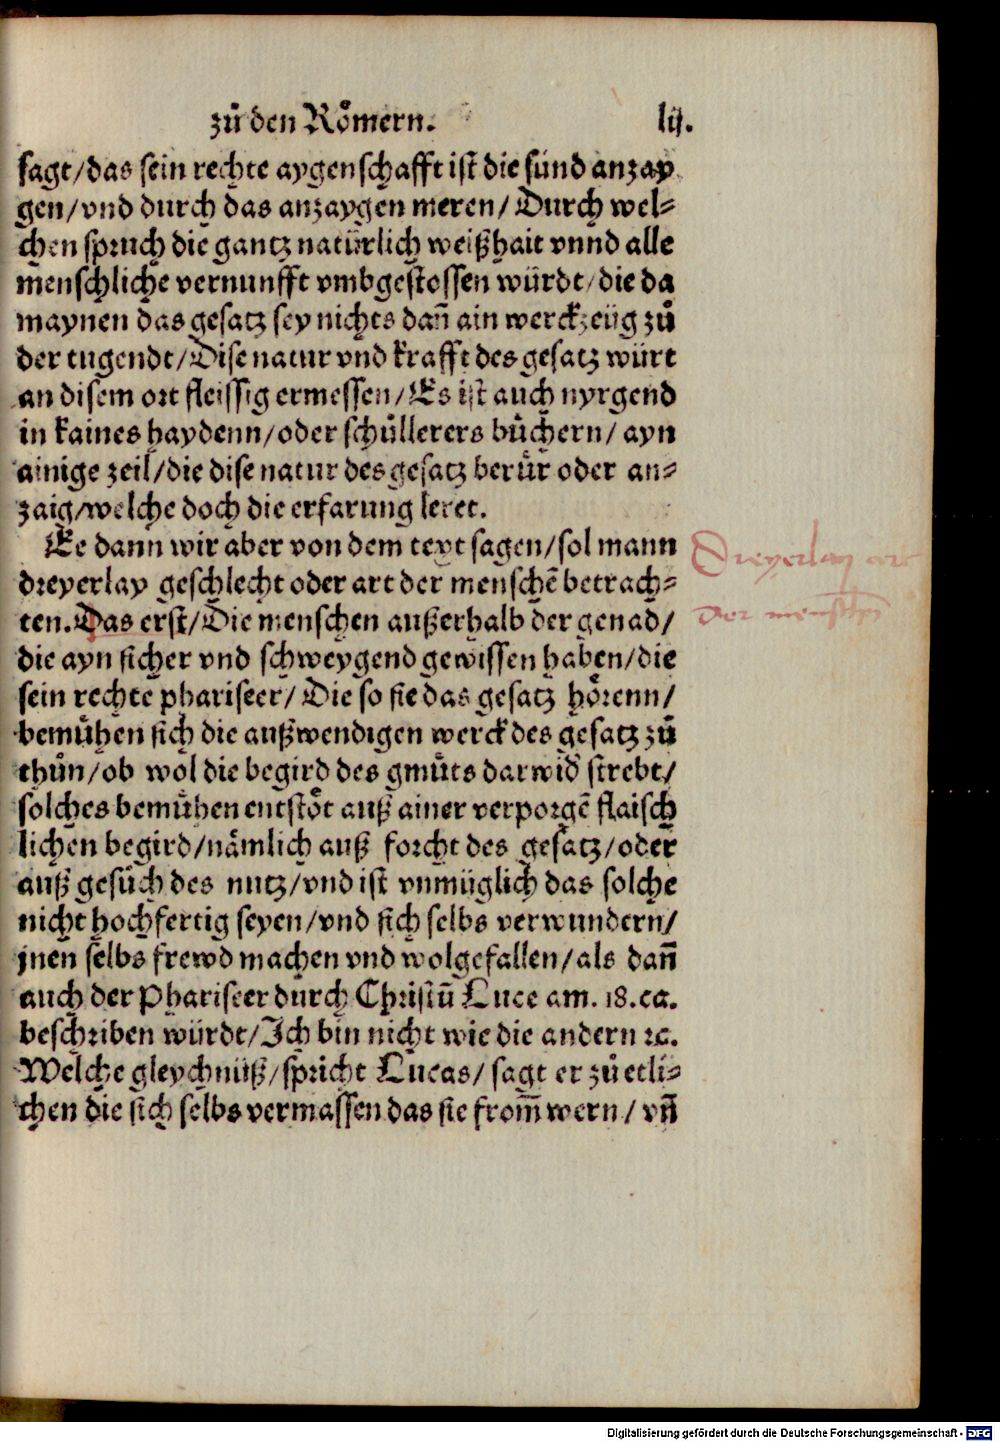 zů den Rőmern. lij.
sagt/das sein rechte aygenschafft ist die sünd anzay
gen/vnd durch das anzaygen meren/Durch wel⸗
chen spruch die gantz natürlich weißhait vnnd alle
menschliche vernunfft vmbgestossen würdt/die da
maynen das gesatz sey nichts dañ ain werckzeüg zů
der tugendt/Dise natur vnd krafft des gesatz würt
an disem ort fleissig ermessen/Es ist auch nyrgend
in kaines haydenn/oder schůllerers bůchern/ayn
ainige zeil/die dise natur des gesatz berůr oder an⸗
zaig/welche doch die erfarung leret.
Ee dann wir aber von dem text sagen/sol mann
dreyerlay geschlecht oder art der menschē betrach⸗
ten. Das erst/Die menschen außerhalb der genad/
die ayn sicher vnd schweygend gewissen haben/die
sein rechte phariseer/Die so sie das gesatz hőrenn/
bemůhen sich die außwendigen werck des gesatz zů
thůn/ob wol die begird des gmůts darwid̕ strebt/
solches bemůhen entstőt auß ainer verporgē flaisch
lichen begird/nåmlich auß forcht des gesatz/oder
auß gesůch des nutz/vnd ist vnmüglich das solche
nicht hochfertig seyen/vnd sich selbs verwundern/
jnen selbs frewd machen vnd wolgefallen/als dañ
auch der Phariseer durch Christū Luce am. 18. ca.
beschriben würdt/Ich bin nicht wie die andern ꝛc.
Welche gleychnüß/spricht Lucas/sagt er zů etli⸗
chen die sich selbs vermassen das sie from̄ wern/vñ
Dreyerlay art
der menschen
Digitalisierung gefördert durch die Deutsche Forschungsgemeinschaft - DFG